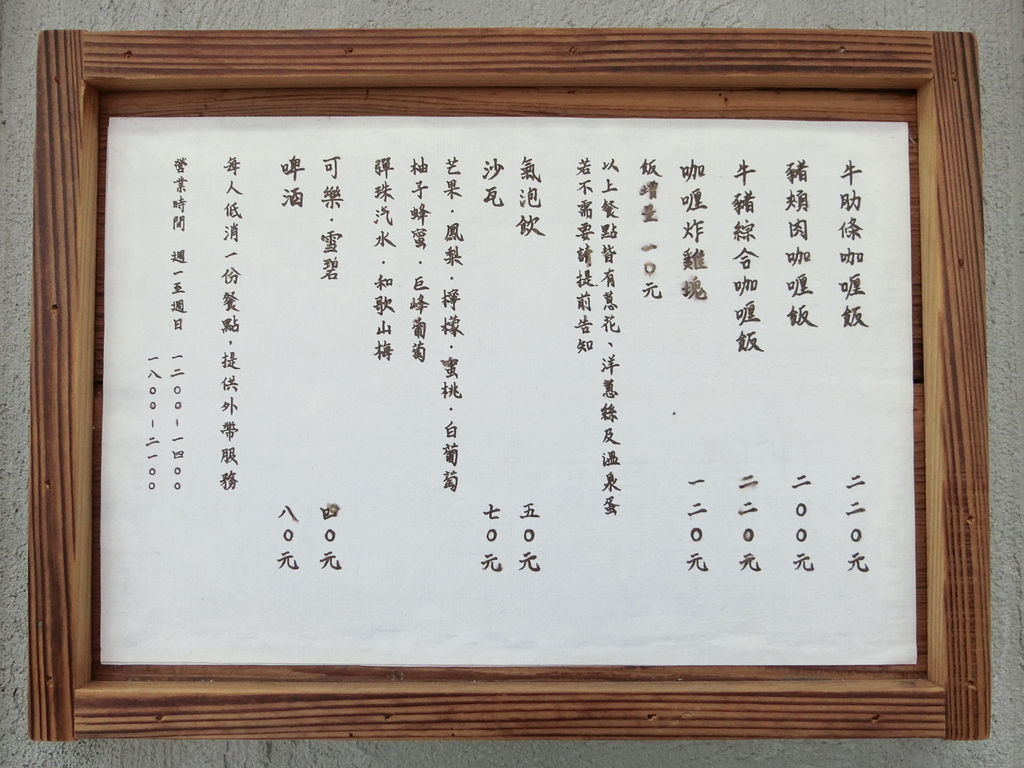 牛肋條咖喱飯 二二〇元
豬頰肉咖喱飯 二〇〇元
牛豬綜合咖喱飯 二二〇元
咖喱炸雞塊 一二〇元
飯增量 一〇元
以上餐點皆有蔥花、洋蔥絲及溫泉蛋
若不需要請提前告知
氣泡飲 五〇元
沙瓦 七〇元
芒果·鳳梨·檸檬·蜜桃·白葡萄
柚子蜂蜜·巨峰葡萄
彈珠汽水·和歌山梅
可樂·雪碧 四〇元
啤酒 八〇元
每人低消一份餐點,提供外帶服務
營業時間 週一至週日 一二〇〇-一四〇〇
一八〇〇-二一〇〇